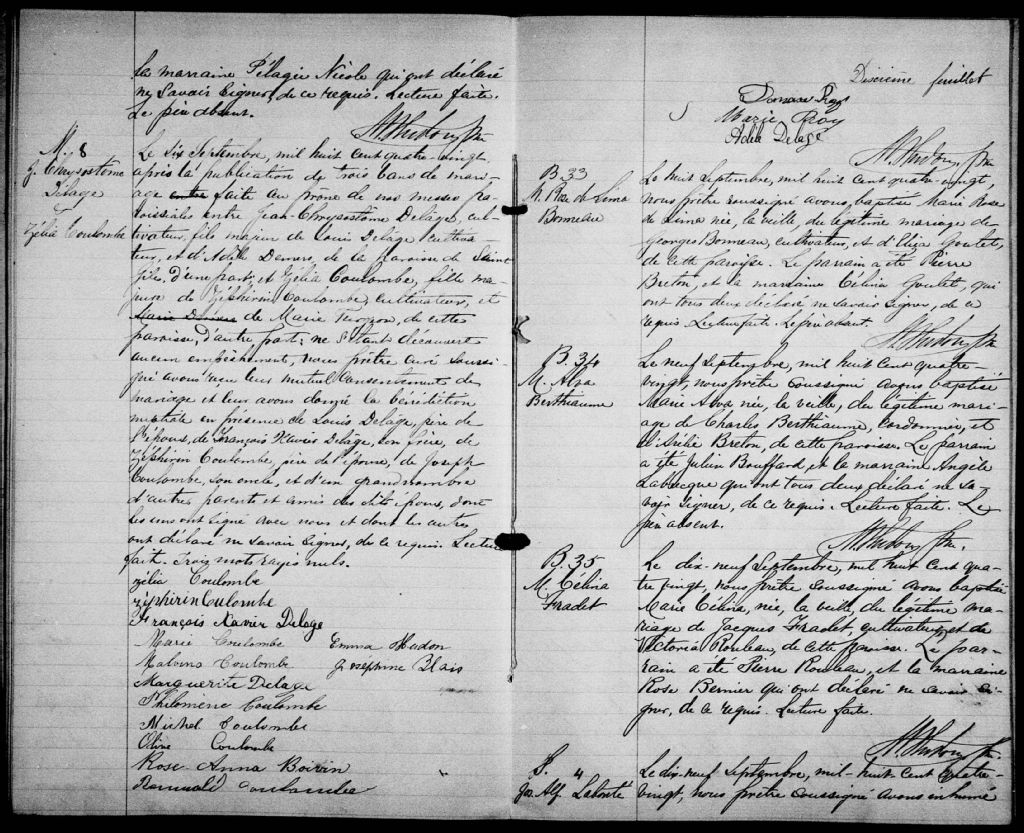 la marraine Pélagie Nicole qui ont déclaré
ne savoir signer, de ce requis. Lecture faite.
Le père absent.
M. 8
J. Chrysostôme
Délage
&
Zélia Coulombe
Le six Septembre, mil huit cent quatre-vingt,
après la publication de trois bans de mari-
age entre faite au prône de nos messes pa-
roissiales entre Jean-Chrysostôme Delâge, cul-
tivateur, fils majeur de Louis Delâge, cultiva-
teur, et d'Adèle Demers, de la paroisse de Saint
d'une part; et Zélia Coulombe, fille ma-
jeure de Zéphirin Coulombe, cultivateur, et
de Marie Turgeon, de cette
paroisse, d'autre part; ne s'étant découvert
aucun empêchement, nous prêtre curé soussi-
gné avons reçu leur mutuel consentement de
mariage et leur avons donné la bénédiction
nuptiale en présence de Louis Delâge, père de
l'époux, de François Xavier Delâge, son frère, de
Zéphirin Coulombe, père de l'épouse, de Joseph
Coulombe, son oncle, et d'un grand nombre
d'autres parents et amis des dits époux, dont
les uns ont signé avec nous et dont les autres
ont déclaré ne savoir signer, de ce requis. Lecture
faite. Trois mots rayés nuls.
Zélia Coulombe
Zéphirin Coulombe
François Xavier Delage
Marie Coulombe Emma Hudon
Malvina Coulombe Joséphine Blais
Marguerite Delage
Philomène Coulombe
Michel Coulombe
Olive Coulombe
Rose Anna Boivin
Romuald Coulombe
Dixième feuillet
Roy
Marie Roy
Adèle Delage
B. 33
M. Rose de Lima
Bonneau
Le huit Septembre, mil huit cent quatre-vingt,
nous prêtre soussigné avons baptisé Marie Rose
de Lima née, la veille, du légitime mariage de
Georges Bonneau, cultivateur, et d'Goulet,
de cette paroisse. Le parrain a été Pierre
Breton, et la marraine Célina Goulet, qui
ont tous deux déclaré ne savoir signer, de ce
requis. Lecture faite. Le père absent.
B. 34
M. Alva
Berthiaume
Le neuf Septembre, mil huit cent quatre-
vingt, nous prêtre soussigné avons baptisé
Marie Alva née, la veille, du légitime mari-
age de Charles Berthiaume, cordonnier, et
Breton, de cette paroisse. Le parrain
a été Julien Bouffard, et la marraine Angèle
Labrecque qui ont tous deux déclaré ne sa-
voir signer, de ce requis. Lecture faite. Le
père absent.
B. 35
M. Célina
Fradet
Le dix-neuf Septembre, mil huit cent qua-
tre vingt, nous prêtre soussigné avons baptisé
Marie Célina, née, la veille du légitime ma-
riage de Jacques Fradet, cultivateur, et de
Victoria Rouleau, de cette paroisse. Le par-
rain a été Pierre Rouleau, et la marraine
Rose Bernier qui ont déclaré ne savoir si-
gner, de ce requis. Lecture faite.
S. 4
Jos. Alf. Labonté
Le dix-neuf Septembre, mil-huit-cent quatre-
vingt, nous prêtre soussigné avons inhumé